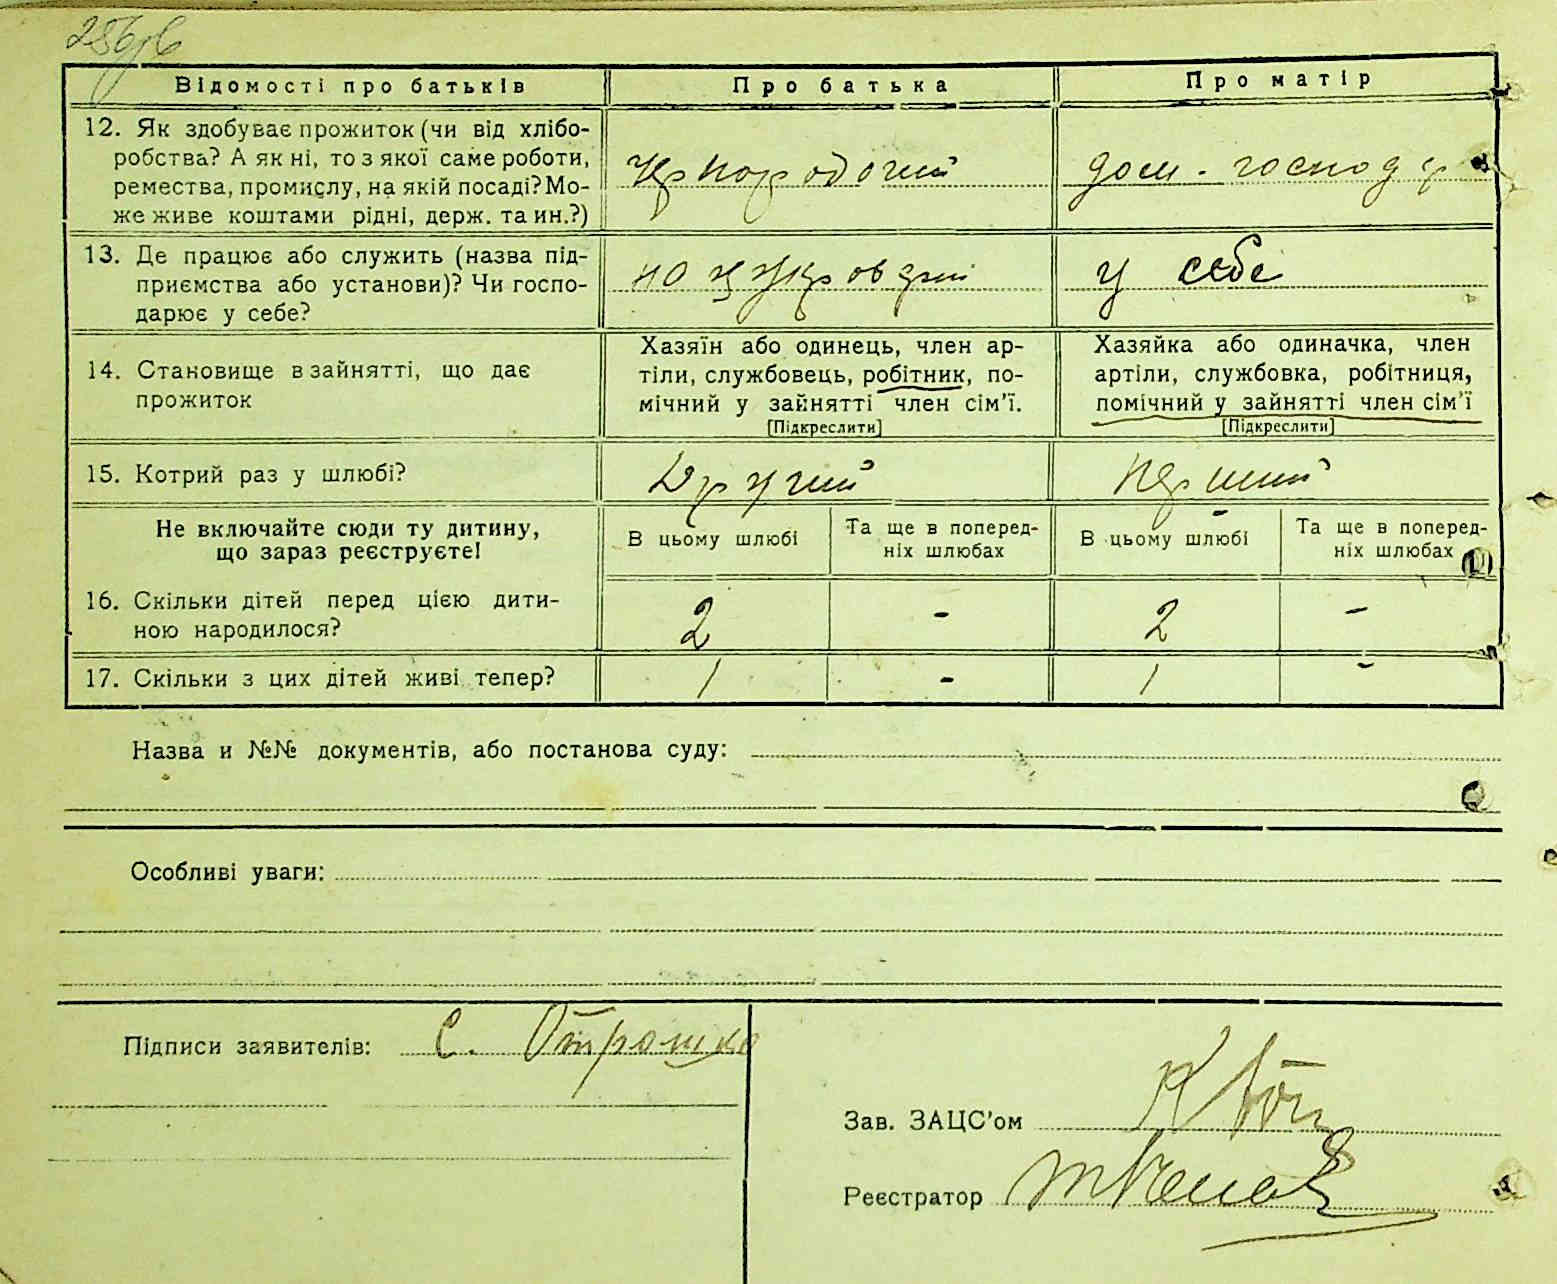 Відомості про батьків
Про батька
Про матір
12. Як здобуває прожиток (чи від хлібо-
робства? А як ні, то з якої саме роботи,
ремества, промислу, на якій посаді? Мо-
же живе коштами рідні, держ. та ин.?)
дом. господ
13. Де працює або служить (назва під-
приємства або установи)? Чи госпо-
дарює у себе?
у себе
14. Становище в зайнятті, що дає
прожиток
Хазяїн або одинець, член ар-
тіли, службовець, робітник, по-
мічний у зайнятті член сім'ї.
[Підкреслити]
Хазяйка або одиначка, член
артіли, службовка, робітниця,
помічний у зайнятті член сім'ї
[Підкреслити]
15. Котрий раз у шлюбі?
Другий
Перший
Не включайте сюди ту дитину,
що зараз реєструєте!
В цьому шлюбі
Та ще в поперед-
ніх шлюбах
В цьому шлюбі
Та ще в поперед-
ніх шлюбах
16. Скільки дітей перед цією дити-
ною народилося?
2
-
2
-
17. Скільки з цих дітей живі тепер?
1
-
1
-
Назва и №№ документів, або постанова суду:
Особливі уваги:
Підписи заявителів: С. Отрошко
Зав. ЗАЦС'ом
Реєстратор